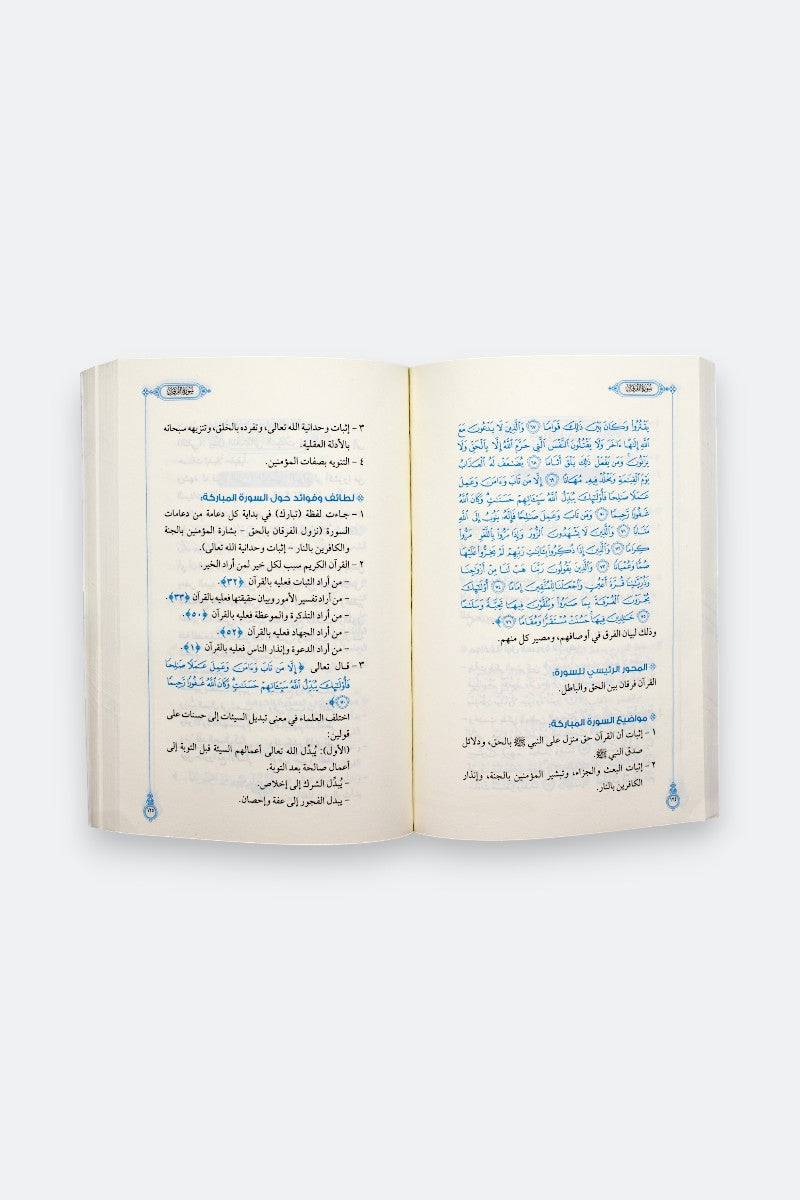 سورة الفرقان
يَقْتُرُوا وَكَانَ بَيْنَ ذَلِكَ قَوَامًا ﴿٦٧﴾ وَالَّذِينَ لَا يَدْعُونَ مَعَ
اللَّهِ إِلَهًا ءَاخَرَ وَلَا يَقْتُلُونَ النَّفْسَ الَّتِي حَرَّمَ اللَّهُ إِلَّا بِالْحَقِّ وَلَا
يَزْنُونَ وَمَن يَفْعَلْ ذَلِكَ يَلْقَ أَثَامًا ﴿٦٨﴾ يُضَاعَفْ لَهُ الْعَذَابُ
يَوْمَ الْقِيَامَةِ وَيَخْلُدْ فِيهِ مُهَانًا ﴿٦٩﴾ إِلَّا مَن تَابَ وَءَامَنَ وَعَمِلَ
عَمَلًا صَالِحًا فَأُوْلَئِكَ يُبَدِّلُ اللَّهُ سَيِّئَاتِهِمْ حَسَنَاتٍ وَكَانَ اللَّهُ
غَفُورًا رَّحِيمًا ﴿٧٠﴾ وَمَن تَابَ وَعَمِلَ صَالِحًا فَإِنَّهُ يَتُوبُ إِلَى اللَّهِ
مَتَابًا ﴿٧١﴾ وَالَّذِينَ لَا يَشْهَدُونَ الزُّورَ وَإِذَا مَرُّوا بِاللَّغْوِ مَرُّوا
كِرَامًا ﴿٧٢﴾ وَالَّذِينَ إِذَا ذُكِّرُوا بِآيَاتِ رَبِّهِمْ لَمْ يَخِرُّوا عَلَيْهَا
صُمًّا وَعُمْيَانًا ﴿٧٣﴾ وَالَّذِينَ يَقُولُونَ رَبَّنَا هَبْ لَنَا مِنْ أَزْوَاجِنَا
وَذُرِّيَّاتِنَا قُرَّةَ أَعْيُنٍ وَاجْعَلْنَا لِلْمُتَّقِينَ إِمَامًا ﴿٧٤﴾ أُوْلَئِكَ
يُجْزَوْنَ الْغُرْفَةَ بِمَا صَبَرُوا وَيُلَقَّوْنَ فِيهَا تَحِيَّةً وَسَلَامًا
﴿٧٥﴾ خَالِدِينَ فِيهَا حَسُنَتْ مُسْتَقَرًّا وَمُقَامًا ﴿٧٦﴾.
وذلك لبيان الفرق في أوصافهم، ومصير كل منهم.
المحور الرئيسي للسورة:
القرآن فرقان بين الحق والباطل.
مواضيع السورة المباركة:
١ – إثبات أن القرآن حق منزل على النبي ﷺ بالحق، ودلائل
صدق النبي ﷺ.
٢ – إثبات البعث والجزاء، وتبشير المؤمنين بالجنة، وإنذار
الكافرين بالنار.
١٢٤
سورة الفرقان
٣ – إثبات وحدانية الله تعالى، وتفرده بالخلق، وتنزيهه سبحانه
بالأدلة العقلية.
٤ – التنويه بصفات المؤمنين.
لطائف وفوائد حول السورة المباركة:
١ – جاءت لفظة (تبارك) في بداية كل دعامة من دعامات
السورة (نزول الفرقان بالحق – بشارة المؤمنين بالجنة
والكافرين بالنار – إثبات وحدانية الله تعالى).
٢ – القرآن الكريم سبب لكل خير لمن أراد الخير.
– من أراد الثبات فعليه بالقرآن ﴿٣٢﴾.
– من أراد تفسير الأمور وبيان حقيقتها فعليه بالقرآن ﴿٣٣﴾.
– من أراد التذكرة والموعظة فعليه بالقرآن ﴿٥٠﴾.
– من أراد الجهاد فعليه بالقرآن ﴿٥٢﴾.
– من أراد الدعوة وإنذار الناس فعليه بالقرآن ﴿١﴾.
٣ – قال تعالى ﴿إِلَّا مَن تَابَ وَءَامَنَ وَعَمِلَ عَمَلًا صَالِحًا
فَأُوْلَئِكَ يُبَدِّلُ اللَّهُ سَيِّئَاتِهِمْ حَسَنَاتٍ وَكَانَ اللَّهُ غَفُورًا رَّحِيمًا
﴿٧٠﴾.
اختلف العلماء في معنى تبديل السيئات إلى حسنات على
قولين:
(الأول): يُبدِّل الله تعالى أعمالهم السيئة قبل التوبة إلى
أعمال صالحة بعد التوبة.
– يُبدِّل الشرك إلى إخلاص.
– يبدل الفجور إلى عفة وإحصان.
١٢٥